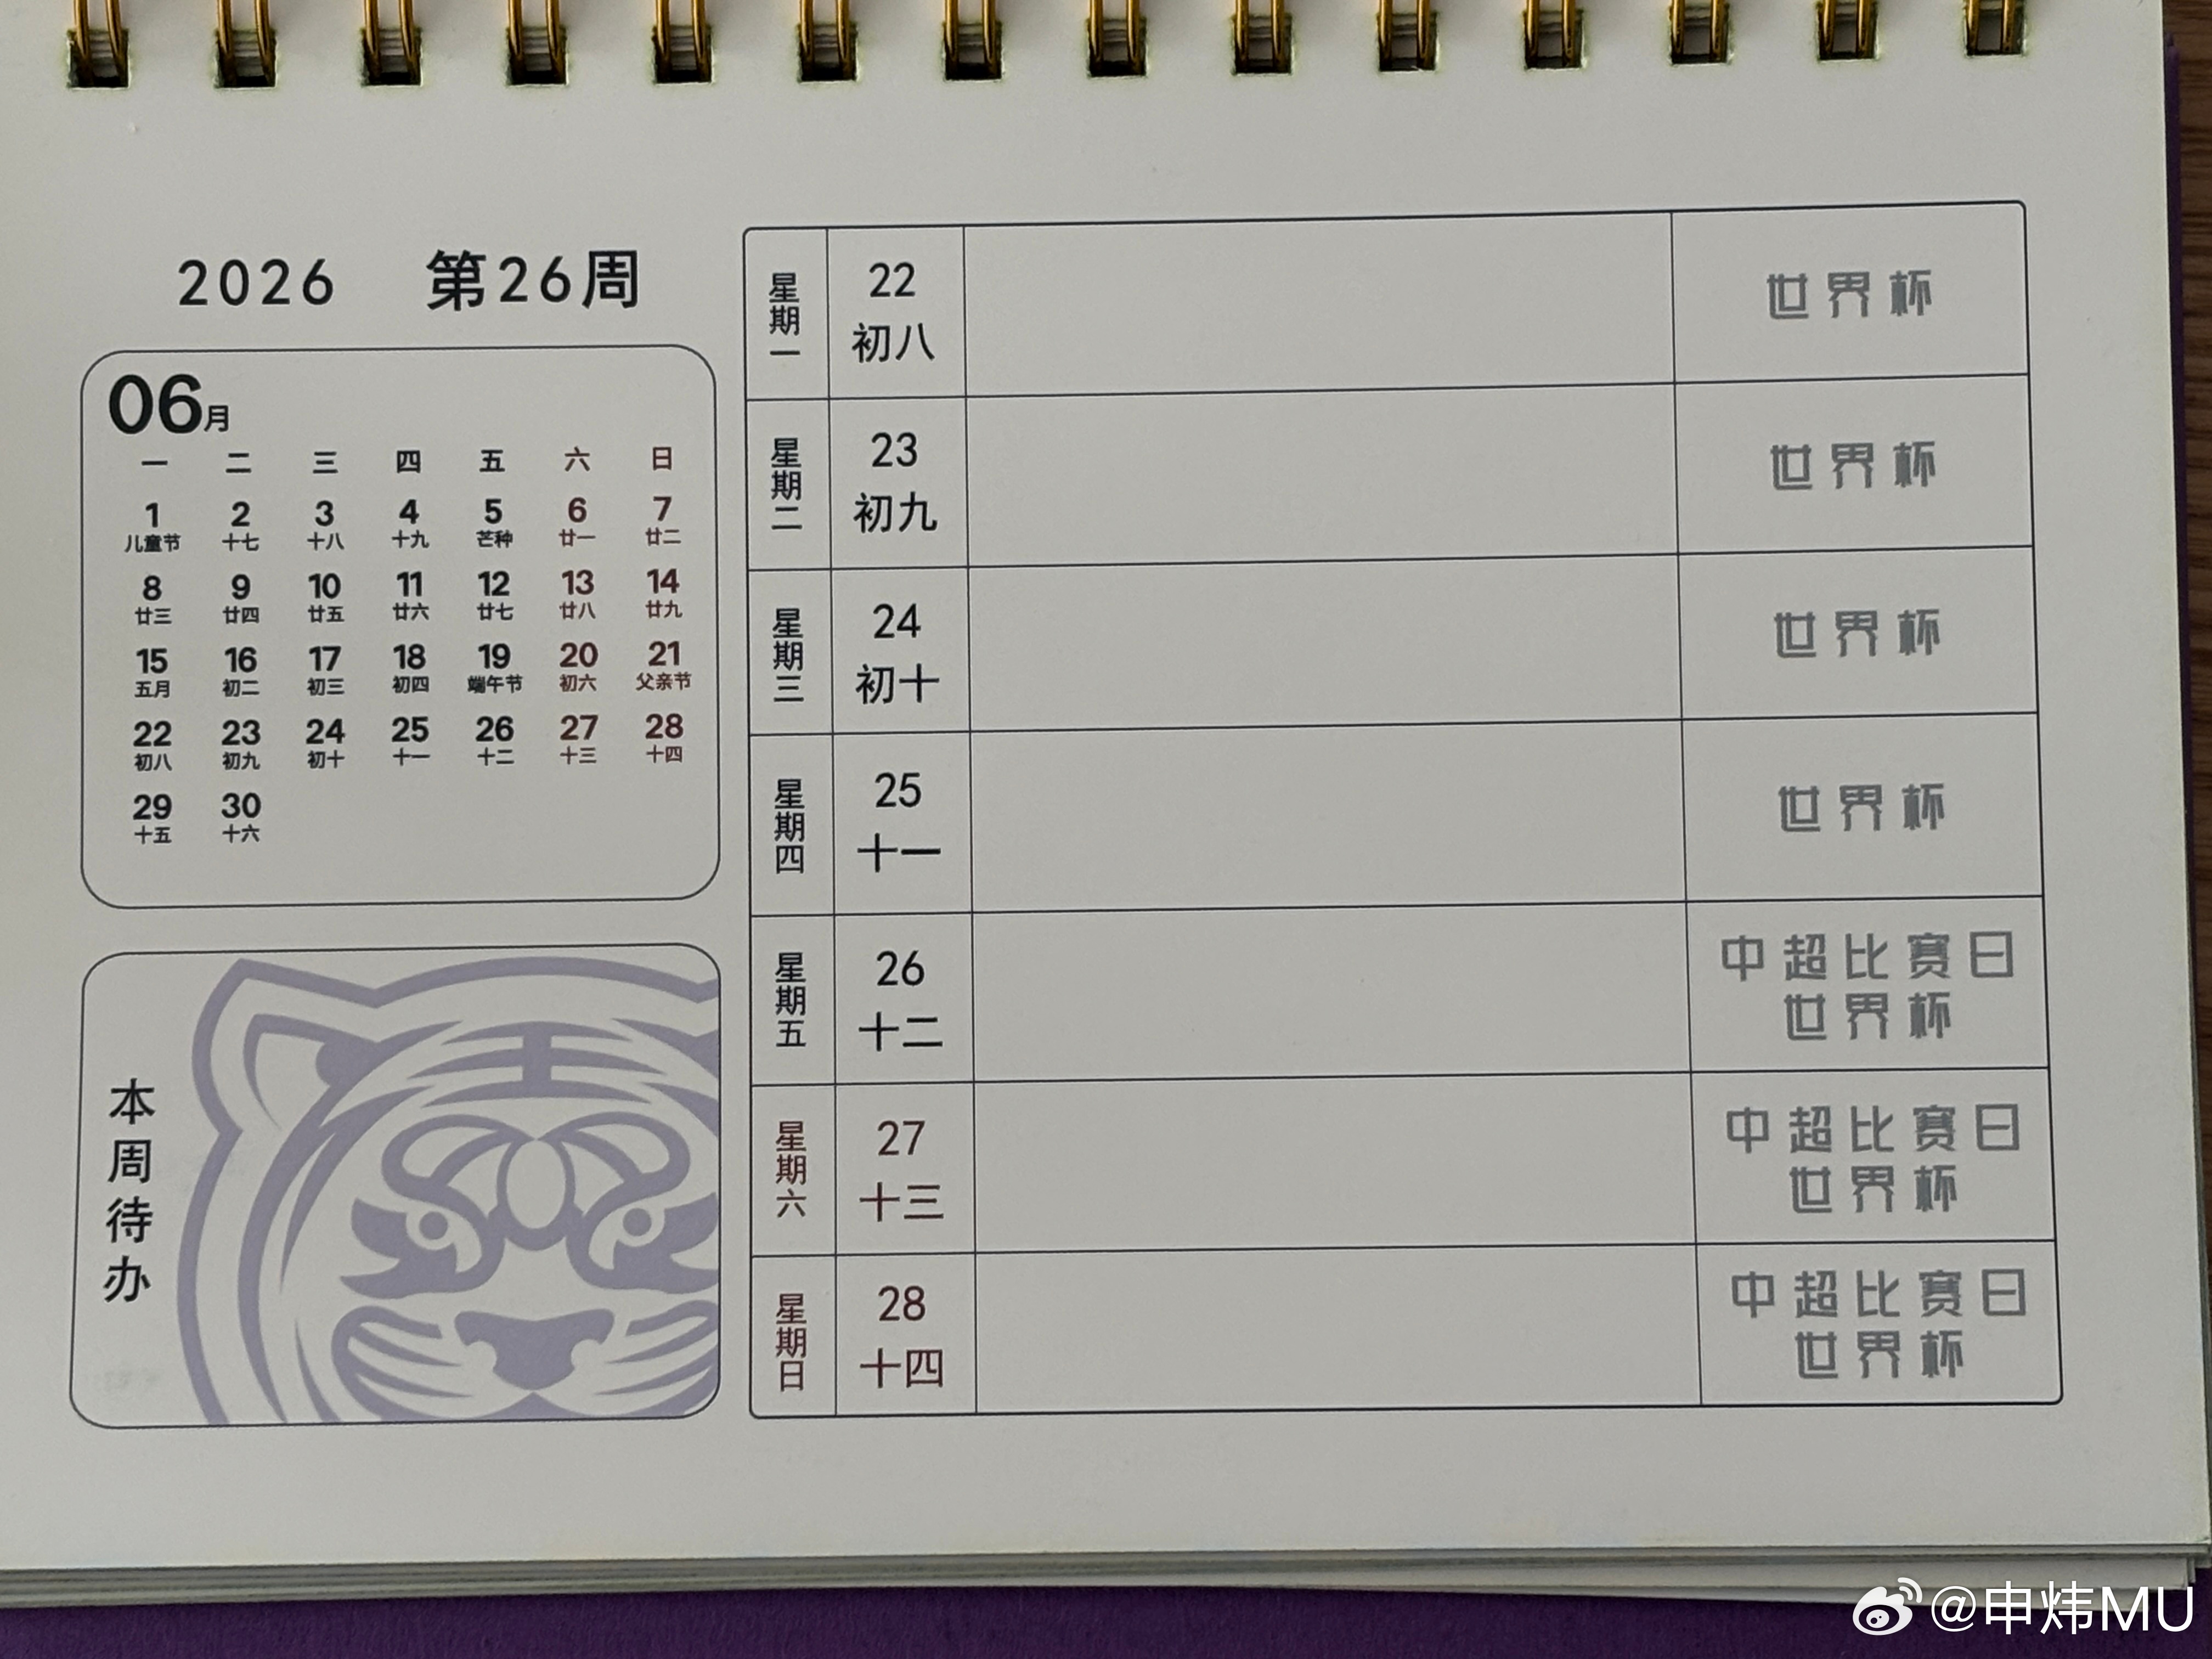 2026 第26周
06月
一 二 三 四 五 六 日
1 2 3 4 5 6 7
儿童节 十七 十八 十九 芒种 廿一 廿二
8 9 10 11 12 13 14
廿三 廿四 廿五 廿六 廿七 廿八 廿九
15 16 17 18 19 20 21
五月 初二 初三 初四 端午节 初六 父亲节
22 23 24 25 26 27 28
初八 初九 初十 十一 十二 十三 十四
29 30
十五 十六
本周待办
星期一 22 初八 世界杯
星期二 23 初九 世界杯
星期三 24 初十 世界杯
星期四 25 十一 世界杯
星期五 26 十二 中超比赛日 世界杯
星期六 27 十三 中超比赛日 世界杯
星期日 28 十四 中超比赛日 世界杯
@申炜MU